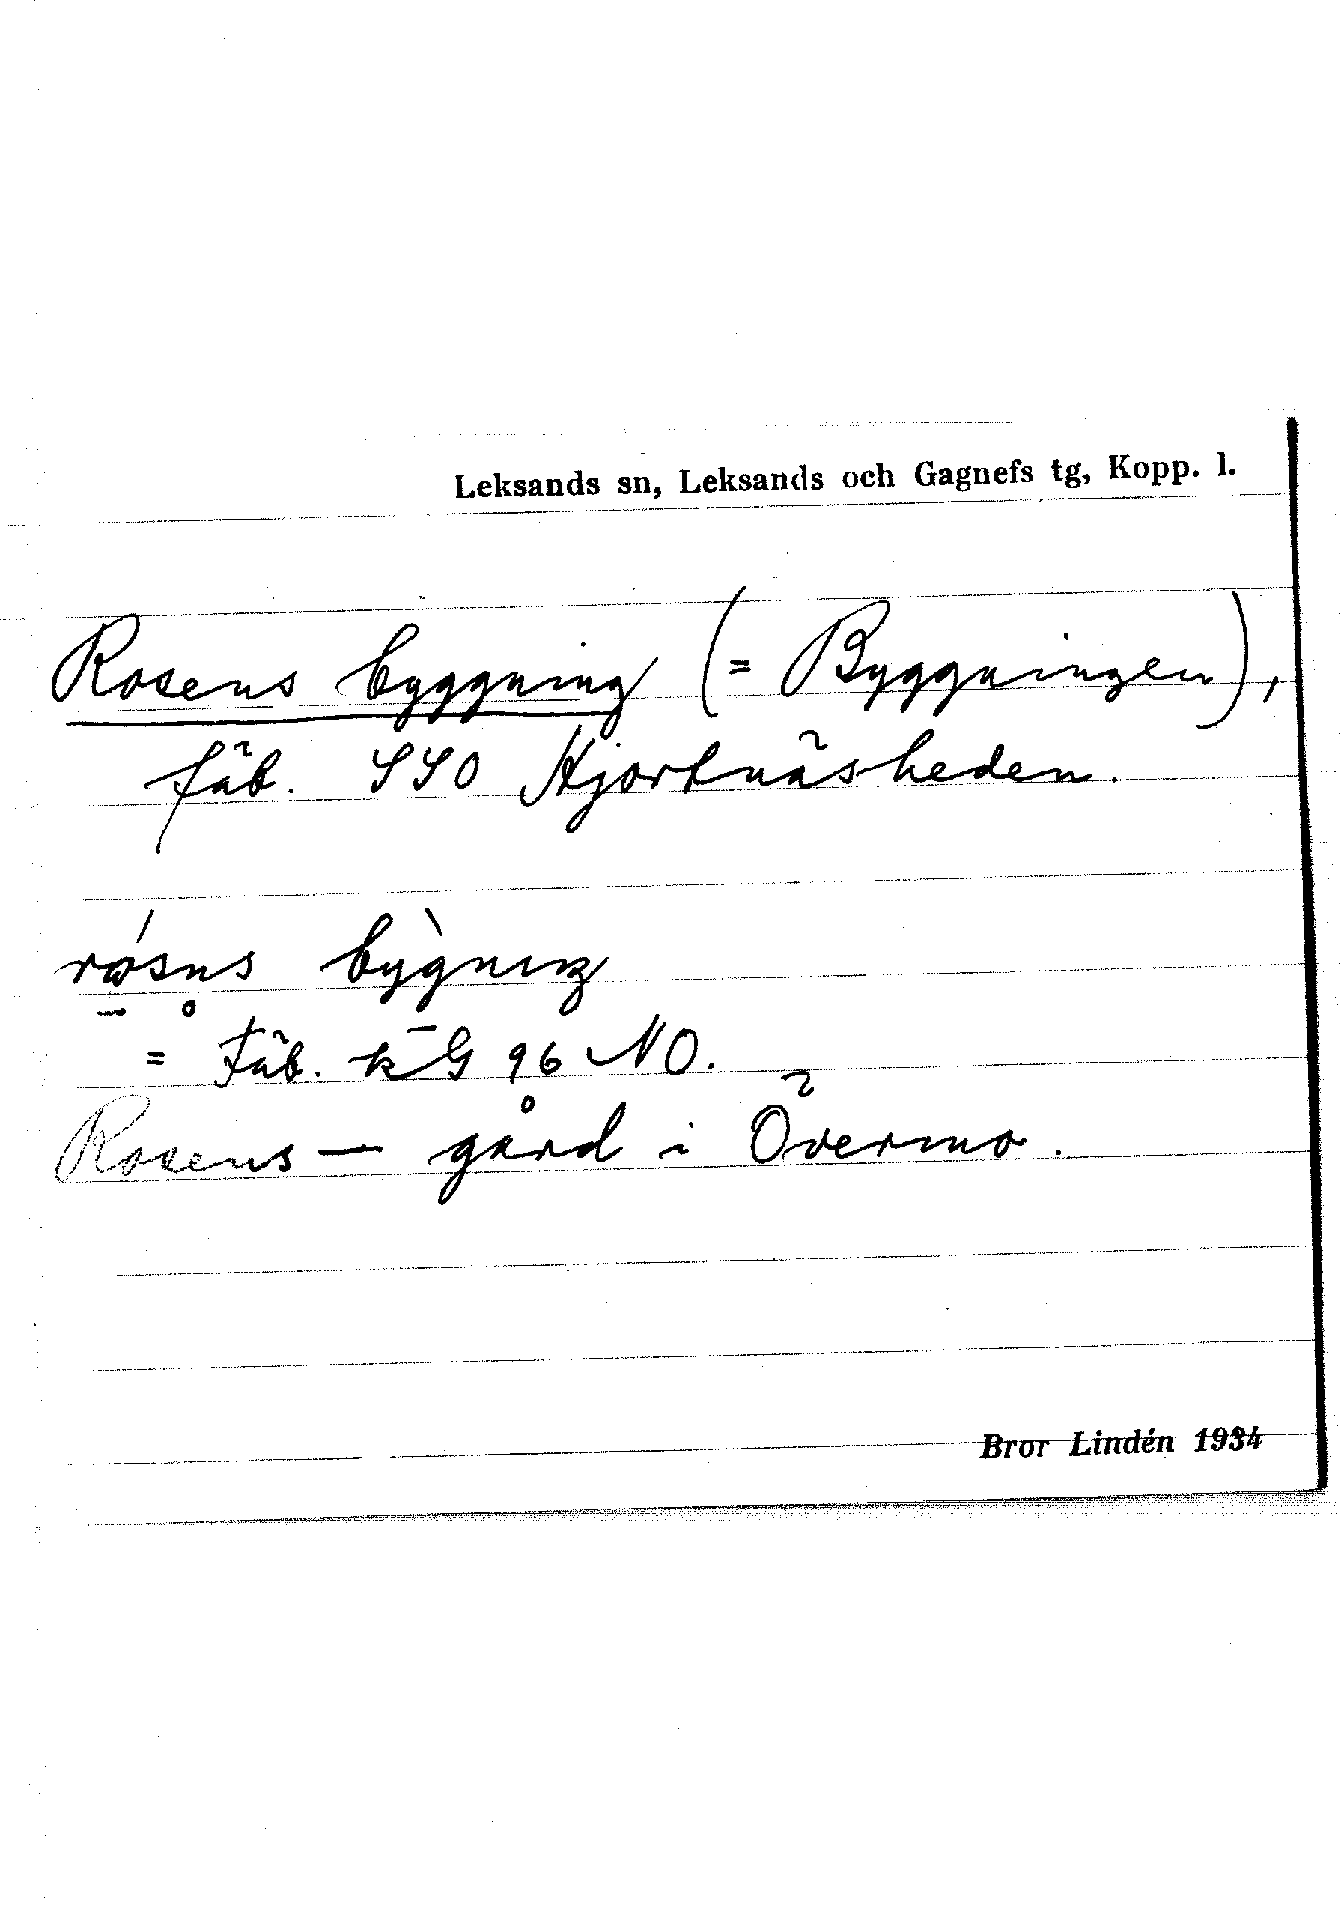 Leksands sn, Leksands och Gagnefs tg, Kopp. l.
Rosens byggning (= Byggningen),
fäb. SSO Hjortnäsheden.
bỳgnıŋ
= Fäb. kG 96 NO.
Rosens — gård i Övermo.
Bror Lindén 1934